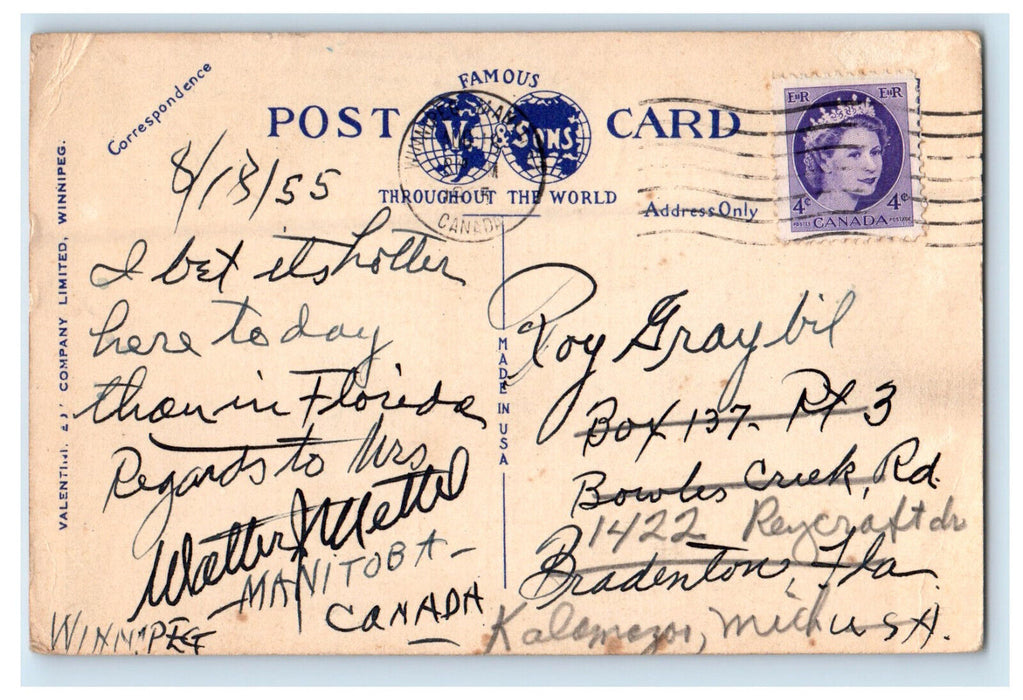 Correspondence
FAMOUS
POST CARD
V. & SONS
THROUGHOUT THE WORLD
Address Only
CANADA
E R E R
4c 4c
POSTES CANADA POSTAGE
VALENTINE COMPANY LIMITED, WINNIPEG.
MADE IN USA
8/18/55
I bet its hotter
here today
than in Florida
Regards to Mrs
Walter J
-MANITOBA-
CANADA
WINNIPEG
Roy Graybil
Box 137- Rt 3
Bowles Creek, Rd.
1422 Reycraft dr
Bradenton, Fla
Kalamazoo, Mich
USA.